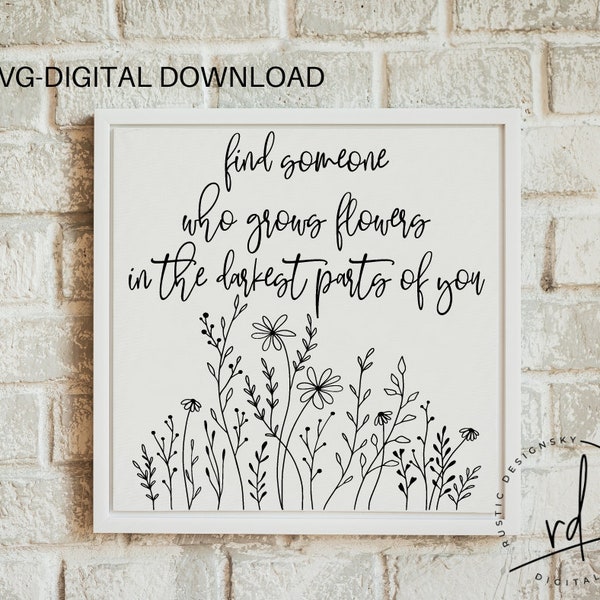 VG-DIGITAL DOWNLOAD
find someone
who grows flowers
in the darkest parts of you
RUSTIC DESIGNSKY
rd
DIGITAL